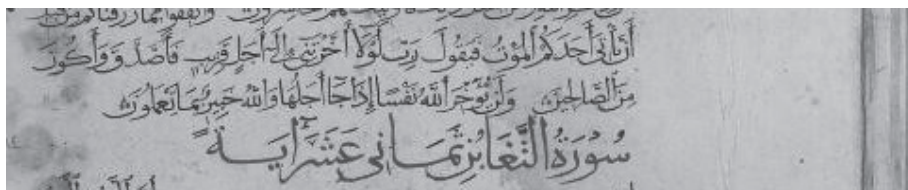 وأنفقوا مما رزقناكم من قبل
أن يأتي أحدكم الموت فيقول رب لولا أخرتني إلى أجل قريب فأصدق وأكون
من الصالحين ولن يؤخر الله نفسا إذا جا أجلها والله خبير بما تعملون
سورة التغابن ثماني عشر آية